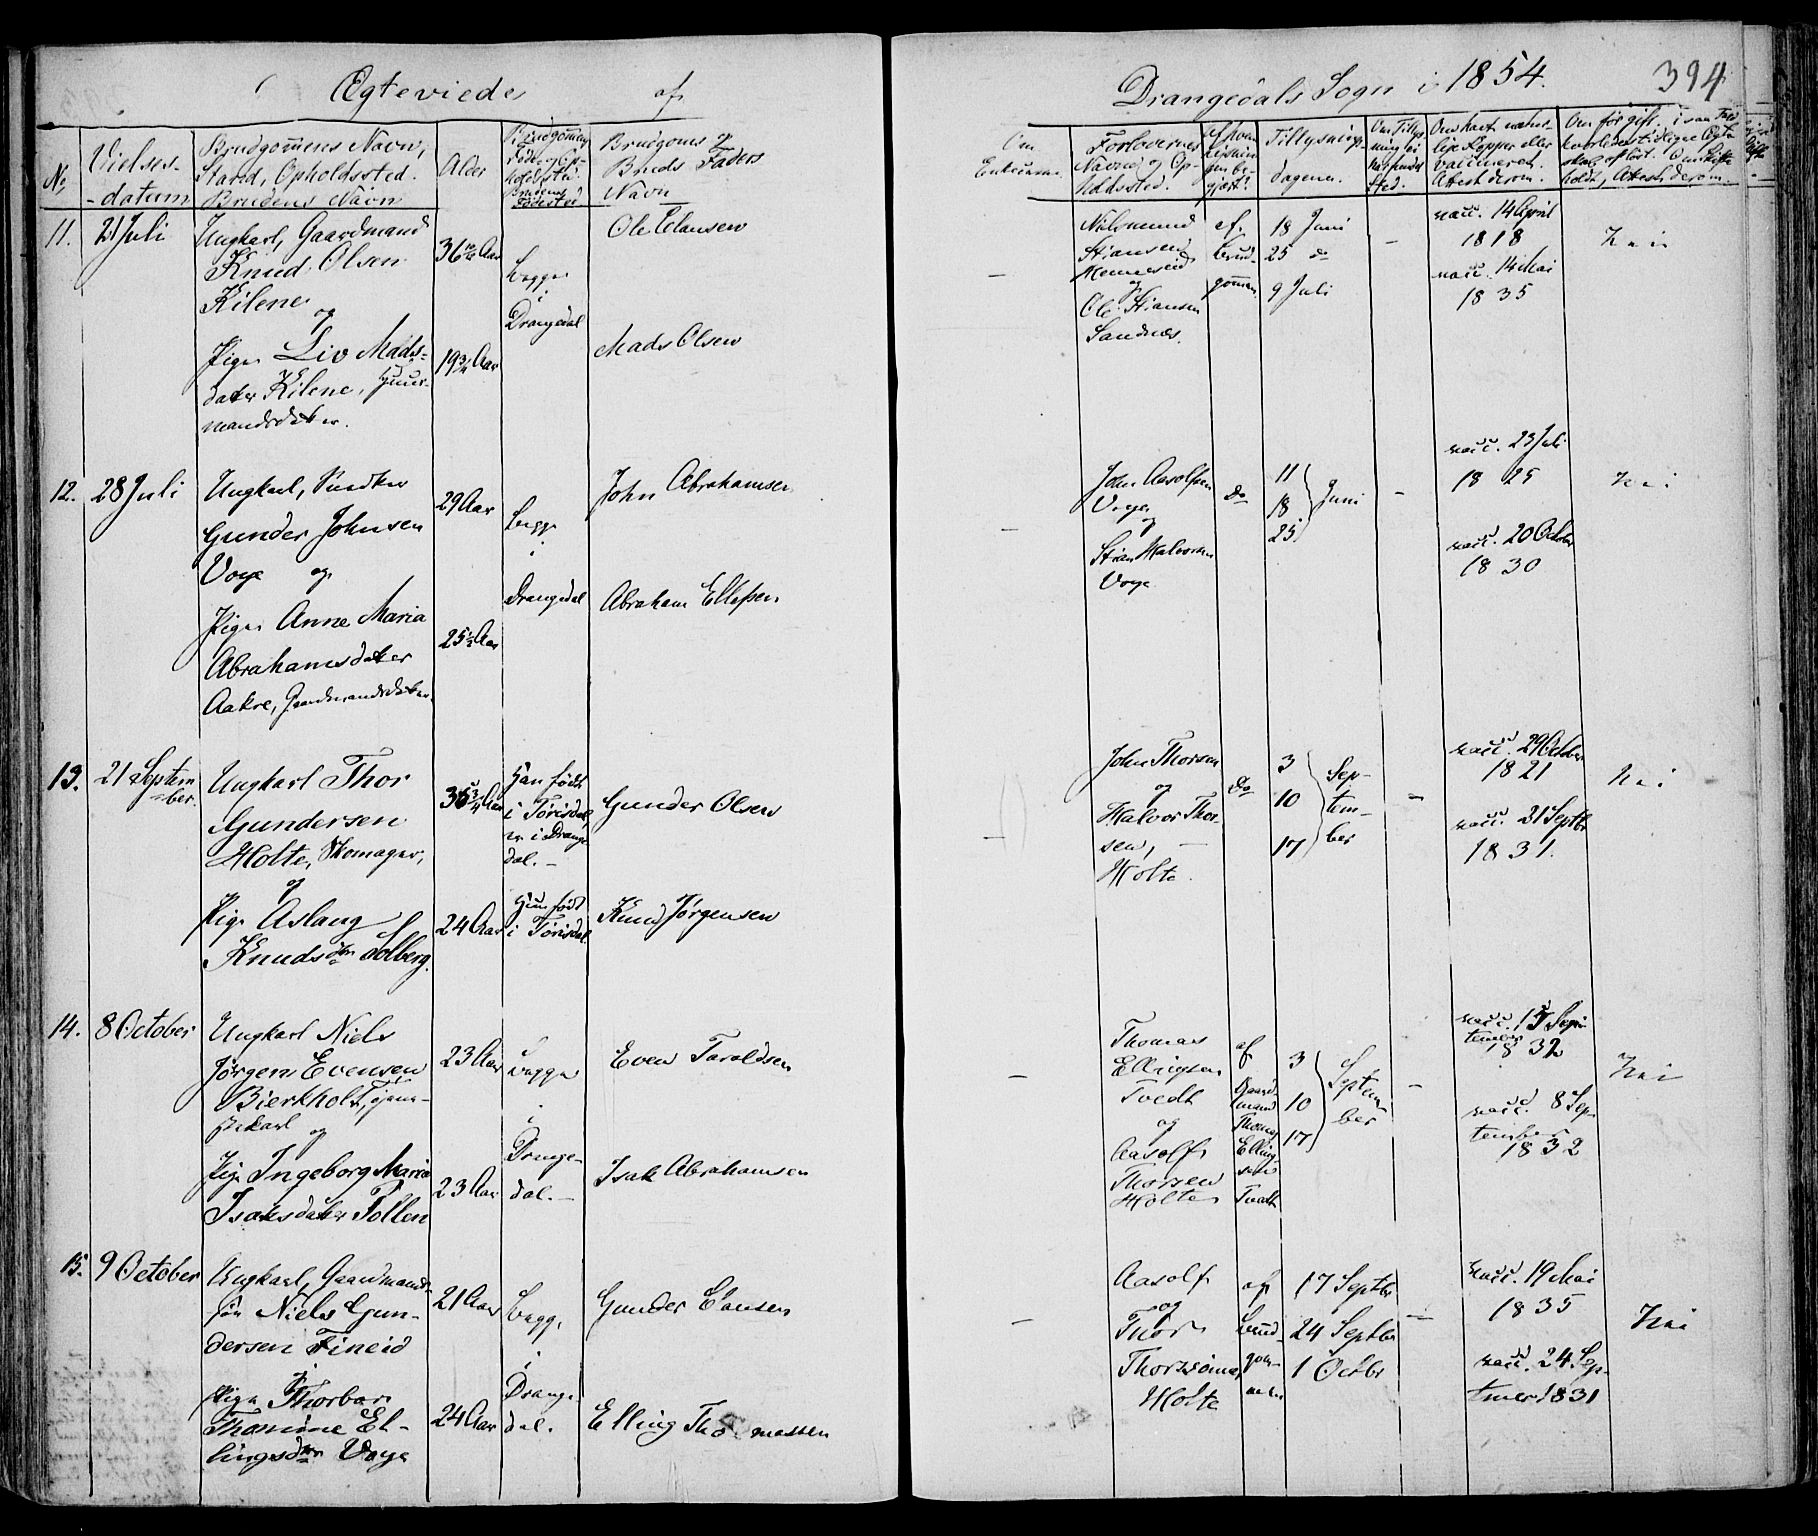 Ægteviede af
Drangedals Sogn i 1854.
394
No
Vielses-
-datum
Brudgommens Navn,
Stand, Opholdssted.
Brudens Navn
Alder
Brudgoms og
Bruds Faders
Navn
Om
Enkeværne.
Forlovernes
Navne og Op-
holdssted.
Tillysnings-
dagene.
11.
21 Juli
Ungkarl, Gaardmand
Knud Olsen
Kilene
og
Pige Liv Mads-
dater Kilene, Huus-
mandsdater.
19 3/4 Aar
begge
i
Drangedal
Ole Clausen
Mads Olsen
-
Stiansen
Henneseid
og
Ole Stiansen
Sandnæs.
af
brud-
gommen
18 Juni
25 do
9 Juli
-
vacc. 14 April
1818
vacc. 14 Mai
1835
Nei
12.
28 Juli
Ungkarl, Snedker
Gunder Johnsen
Voje og
Pige Anne Maria
Abrahamsdater
Aakre, Gaardmandsdater.
29 Aar
25 1/2 Aar
begge
i
Drangedal
John Abrahamsen
Abraham Ellefsen
-
John Aasolfsen
Voje
og
Stian Halvorsen
Voje
do
11
18
25
Juni
-
vacc. 23 Juli
1825
vacc. 20 Octbr
1830
Nei
13.
21 Septem-
ber.
Ungkarl Thor
Gundersen
Holte, Skomager,
og
Pige Aslaug
Knudsdtr Solberg.
24 Aar
Han født
i Tørisdal,
er i Drange
dal.-
Hun født
i Tørisdal
Gunder Olsen
Knud Jørgensen
John Thorsen
og
Halvor Thor-
sen, -
Holte.
do
3
10
17
Sep-
tem-
ber
-
vacc. 29 Octbr
1821
vacc. 21 Septbr
1831.
Nei
14.
8 October
Ungkarl Niels
Jørgen Evensen
Bierkholt, Tjene-
stekarl og
Pige Ingeborg Maria
Isaksdater Tollen
23 Aar
23 Aar
begge
i
Drange-
dal.-
Even Taraldsen
Isak Abrahamsen
-
Thomas
Ellingsen
Tvedt
og
Aasolf
Thorsen
Holte
af
Gaard-
mand
Thomas
Elling-
sen
Tvedt
3
10
17
Septem-
ber
-
vacc. 15 Sep-
tember
1832
vacc. 8 Sep-
tember
1832
Nei
15.
9 October
Ungkarl, Gaardmands-
søn Niels Gun-
dersen Fineid
og
Pige Thorbor
Thomine El-
lingsdtr Voje
21 Aar
24 Aar
begge
i
Drange
dal.
Gunder Clausen
Elling Thomassen
-
Aasolf
og
Thor
Thorssønner
Holte
af
brud-
gom-
men
17 Septbr
24 Septbr
1 Octbr
-
vacc. 19 Mai
1835
vacc. 24 Sep-
tember 1831
Nei